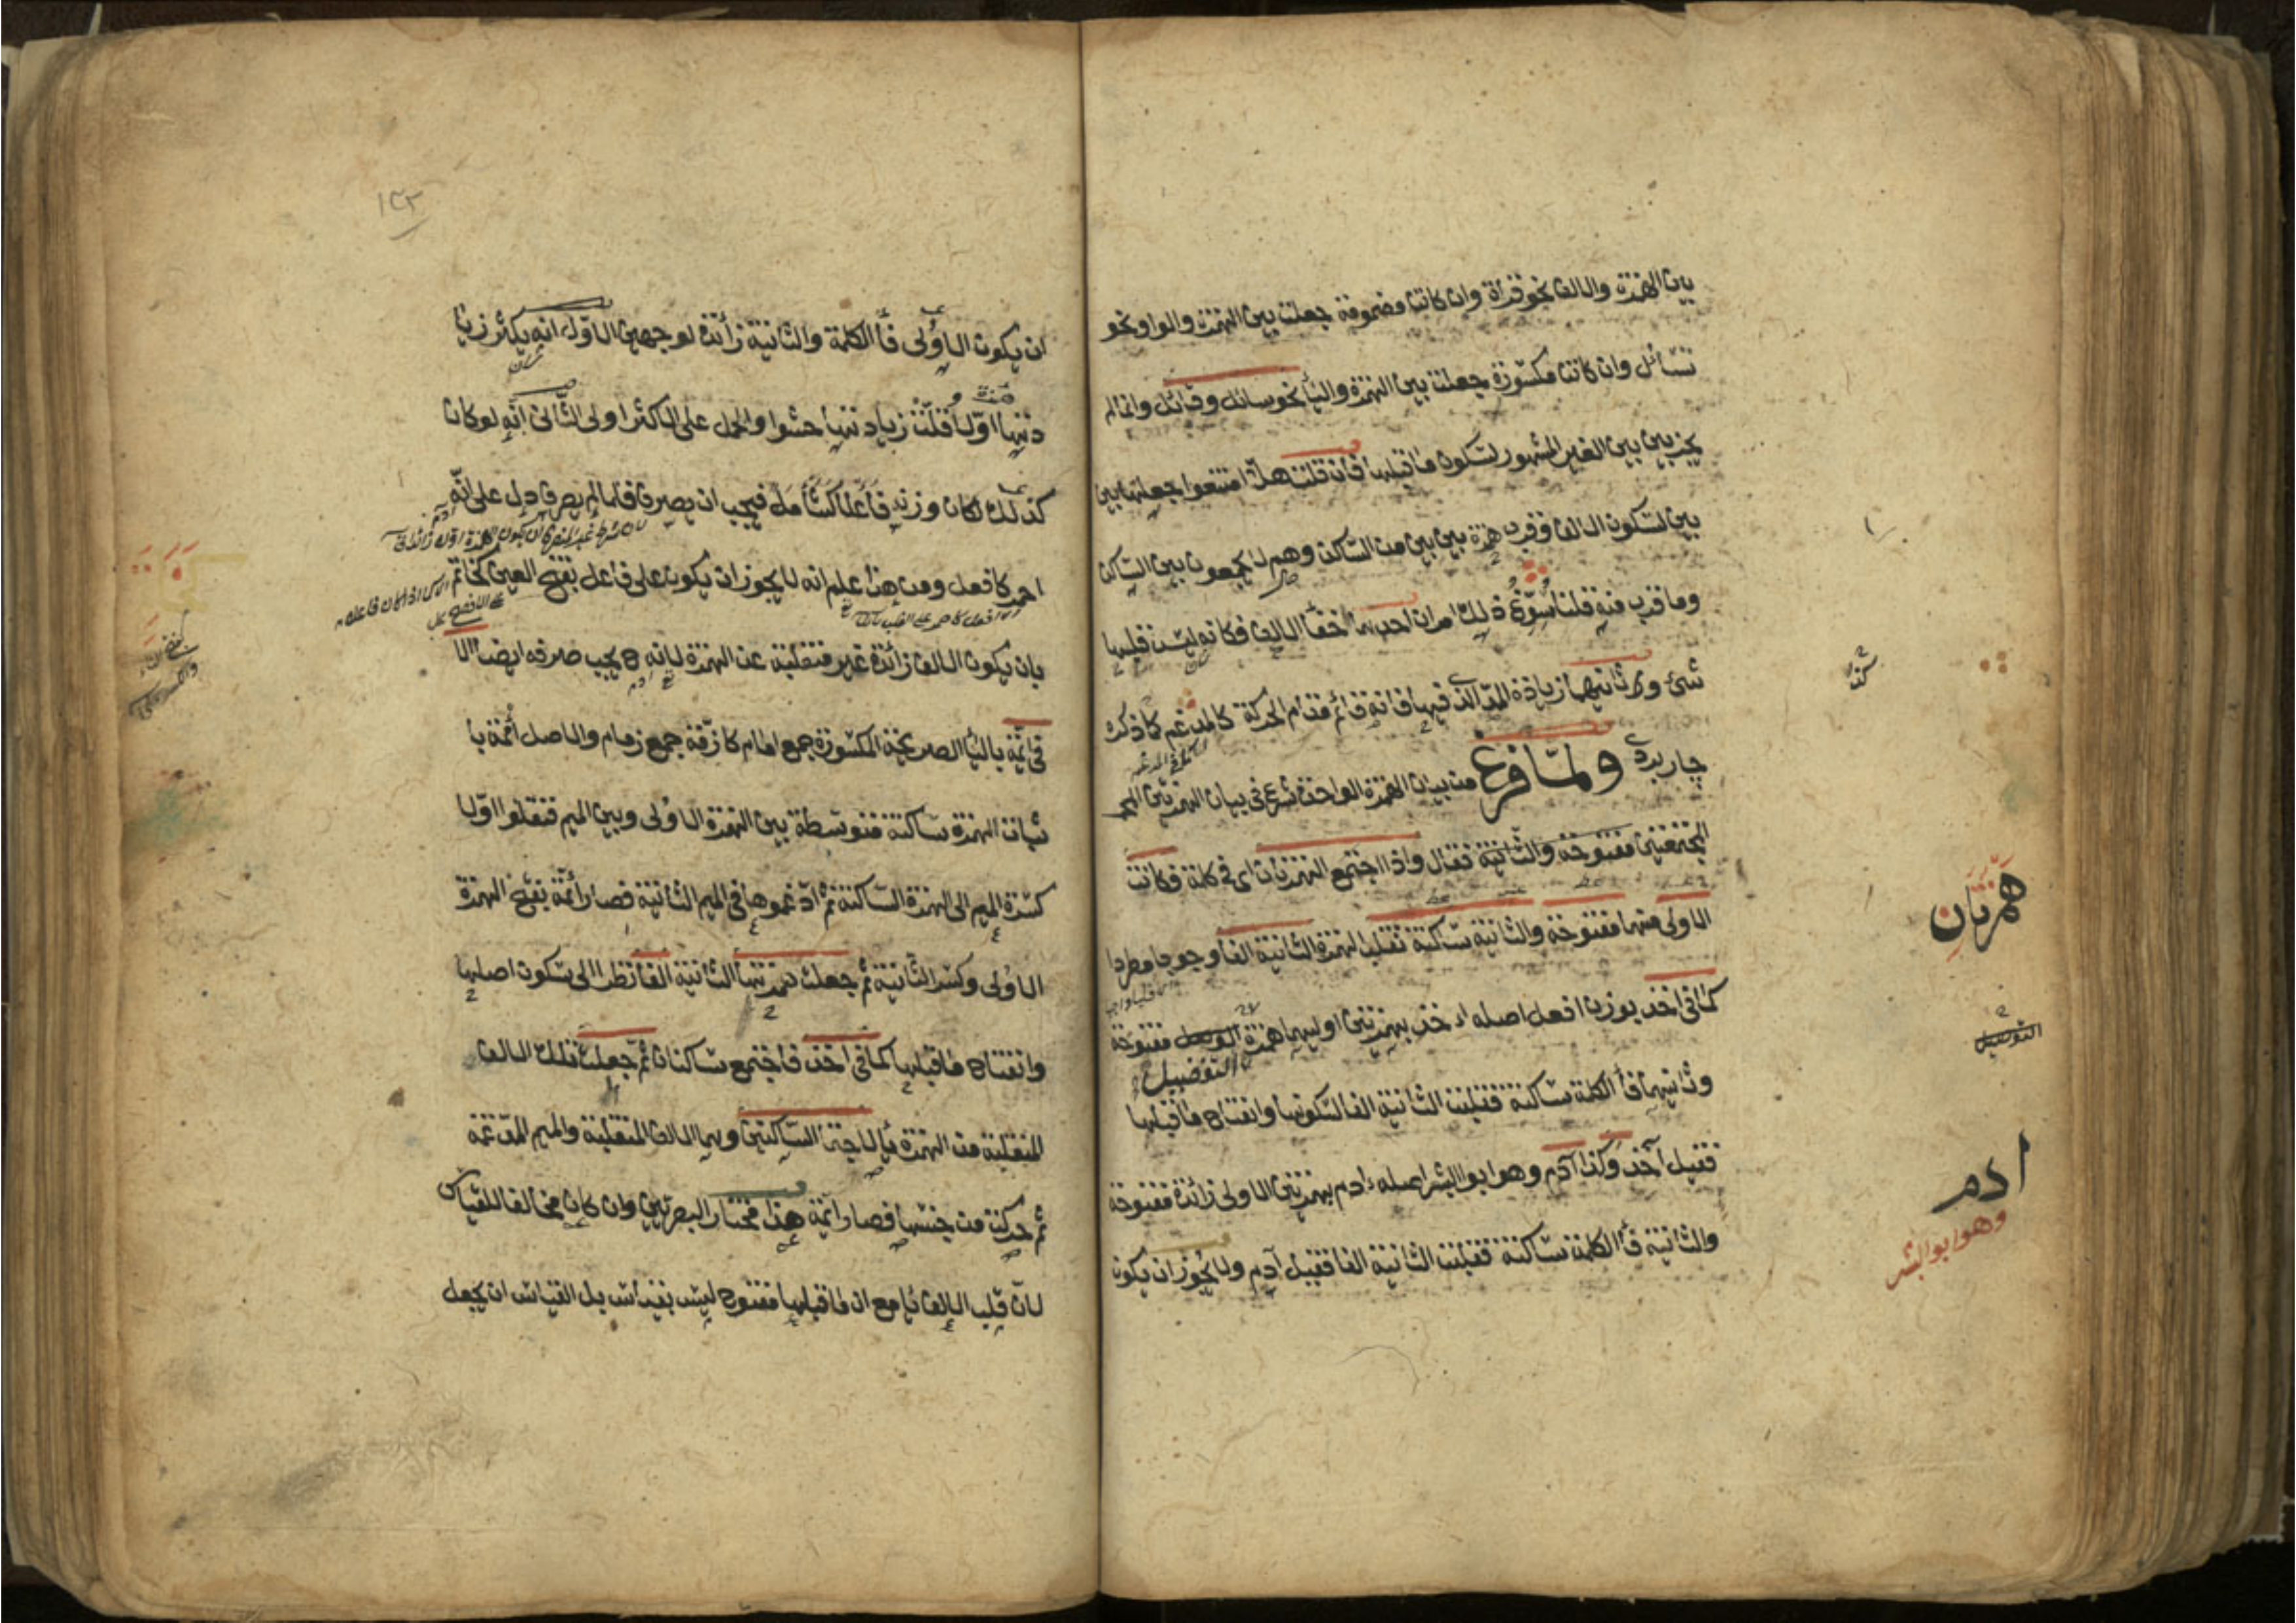 بين الهمزة والالف نحو قراءة وان كانت مضمومة جعلت بين الهمزة والواو نحو
تسائل وان كانت مكسورة جعلت بين الهمزة والياء نحو سائل وقائل وانما لم
يجز بين بين الغير المشهور لسكون ما قبلها فان قلت هلا امتنعوا جعلها بين
بين لسكون الالف وقرب همزة بين بين من الساكن وهم لا يجمعون بين الساكن
وما قرب منه قلنا سوغ ذلك امران احدهما خفاء الالف فكانه ليس قبلها
شيء وثانيهما زيادة المد الذي فيها فانه قائم مقام الحركة كالمدغم كما ذكره
چاربردى ولما فرغ من بيان الهمزة الواحدة شرع في بيان الهمزتين
المجتمعتين مفتوحة والثانية فقال واذا اجتمع الهمزتان اى في كلمة فكانت
الاولى منهما مفتوحة والثانية ساكنة تقلب الهمزة الثانية الفا وجوبا مطردا
كما في اخذ بوزن افعل اصله اءخذ بهمزتين اوليهما همزة مفتوحة
التفضيل
وثانيهما فاء الكلمة ساكنة فقلبت الثانية الفا لسكونها وانفتاح ما قبلها
فقيل آخذ وكذا آدم وهو ابو البشر اصله ءادم بهمزتين الاولى زائدة مفتوحة
والثانية فاء الكلمة ساكنة فقلبت الثانية الفا فقيل آدم ولا يجوز ان يكون
همزتان
ادم
وهو ابو البشر
١٢٣
ان يكون الاولى فاء الكلمة والثانية زائدة لوجهين الاول انه يكثر زيا
دتها اولا فقلت زيادتها حشوا والحمل على الاكثر اولى الثانى انه لو كان
كذلك لكان وزنه فاعلا كشامل فيجب ان يصرف فلما لم يصرف دل على انه
احمر كافعل ومن هذا علم انه لا يجوز ان يكون على فاعل بفتح العين كخاتم
بان يكون الالف زائدة غير منقلبة عن الهمزة لانه ح يجب صرفه ايضا الا
في ائمة بالياء الصريحة المكسورة جمع امام كازمة جمع زمام والاصل أئممة با
ثبات الهمزة ساكنة متوسطة بين الهمزة الاولى وبين الميم فنقلوا اولا
كسرة الميم الى الهمزة الساكنة ثم ادغموها في الميم الثانية فصار أئمة بفتح الهمزة
الاولى وكسر الثانية ثم جعلت همزتها الثانية الفا نظرا الى سكون اصلها
وانفتاح ما قبلها كما في اخذ فاجتمع ساكنان ثم جعلت تلك الالف
المنقلبة من الهمزة ياء لاجتماع الساكنين وهما الالف المنقلبة والميم المدغمة
ثم حركت من جنسها فصار ائمة هذا مختار البصريين وان كان مخالفا للقياس
لان قلب الالف ياء مع ان ما قبلها مفتوح ليس بقياس بل القياس ان يجعل